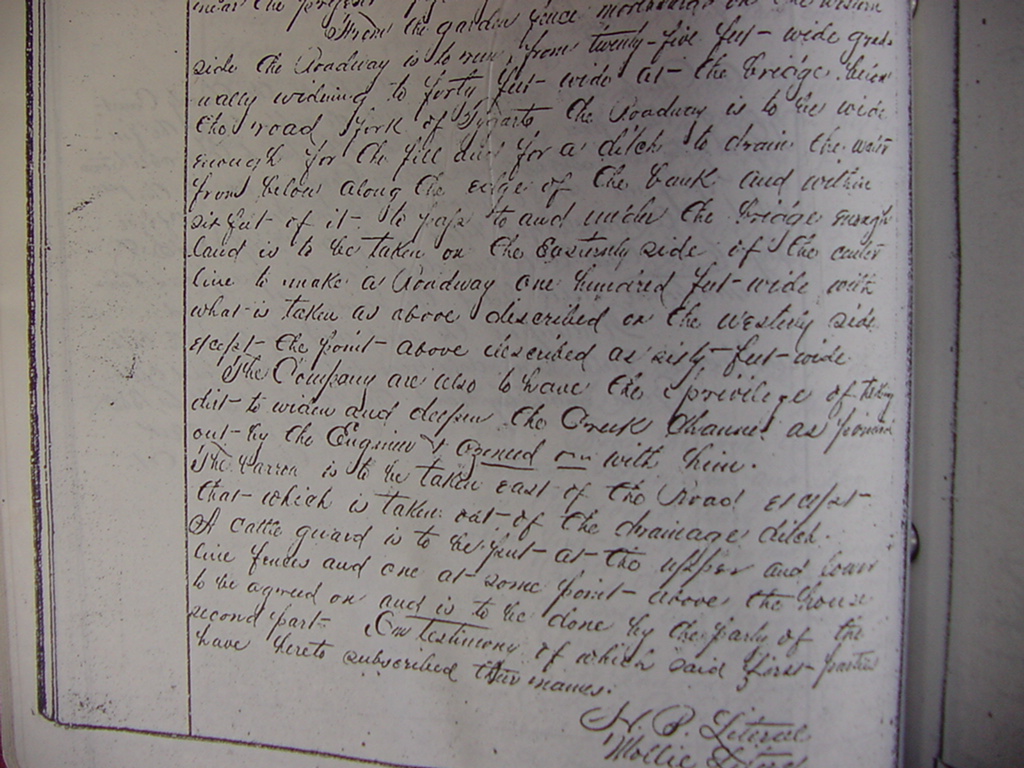 near the present
From the garden fence northwards on the western
side the Roadway is to run from twenty-five feet wide grad-
ually widening to forty feet wide at the bridge. Near
the road fork of Tygarts the Roadway is to be wide
enough for the fill and for a ditch to drain the water
from below along the edge of the bank and within
six feet of it to pass to and under the bridge enough
land is to be taken on the Easternly side of the center
line to make a Roadway one hundred feet wide with
what is taken as above described on the westerly side
except the point above described as sixty feet wide
The Company are also to have the privilege of taking
dirt to widen and deepen the Creek Channel as pointed
out by the Engineer & agreed on with him.
The Barrow is to be taken east of the Road except
that which is taken out of the drainage ditch.
A cattle guard is to be put at the upper and lower
line fences and one at some point above the house
to be agreed on and is to be done by the party of the
second part. In testimony of which said first parties
have hereto subscribed their names.
H. P. Literal
Mollie